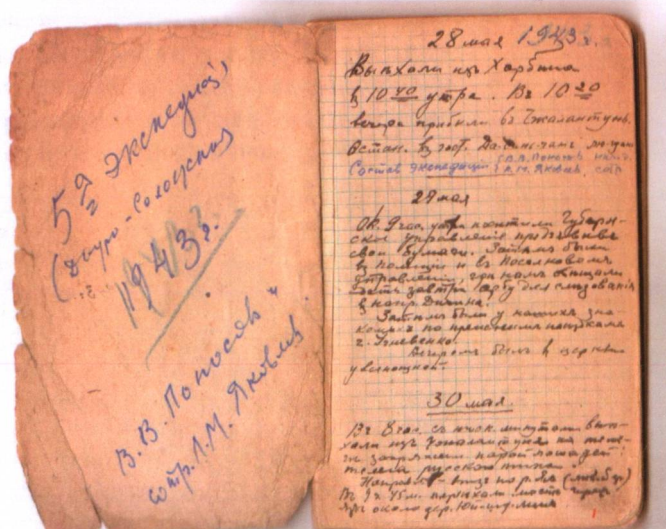 5я экспедиц.
(Дауро-Солонская)
1943 г.
В.В. Поносов и
сотр. А.М. Яковлев.
28 мая 1943 г.
Выѣхали изъ Харбина
в 10 40 утра. Въ 10 20
вечера прибыли въ Чжаланьтунь.
Остан. в гост.
Состав экспедиции: В.В. Поносов нач.
А.М. Яковлев, сотр.
29 мая
Ок. 9 час. утра посѣтили Губерн-
ское управленіе предъявивъ
свои бумаги. Затѣмъ были
в полиціи и в Поселковомъ
управленіи, гдѣ намъ обѣщали
дать завтра арбу для слѣдованія
в напр.
Затѣмъ были у нашихъ зна-
комыхъ по прошлымъ поѣздкамъ
г.
Вечеромъ были в церкви
у всенощной.
30 мая.
Въ 8 час. съ минутами выѣ-
хали изъ Чжаланьтуня на теле-
ге запряжен. парой лошадей
телега русскаго типа.
Направл. - внизъ по р. Ялъ
Въ 9 ч. 45 м. переѣхали мостъ через
Ялъ около дер.